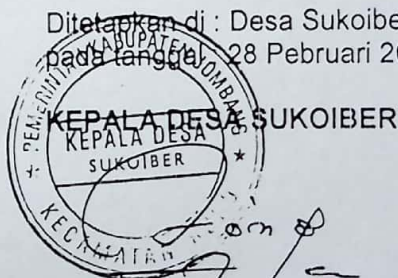 Ditetapkan di : Desa Sukoibe
pada tanggal 28 Pebruari 2
KEPALA DESA SUKOIBER
PEMERINTAH KABUPATEN JOMBANG
KEPALA DESA
SUKOIBER
KECAMATAN